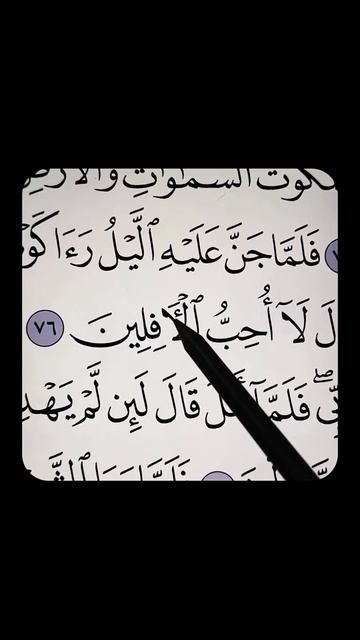 ٱلسَّمَٰوَٰتِ وَٱلْأَرْضِ
فَلَمَّا جَنَّ عَلَيْهِ ٱلَّيْلُ رَءَا كَوْ
لَ لَآ أُحِبُّ ٱلْءَافِلِينَ ٧٦
بِّى ۖ فَلَمَّآ أَفَلَ قَالَ لَئِن لَّمْ يَهْدِ